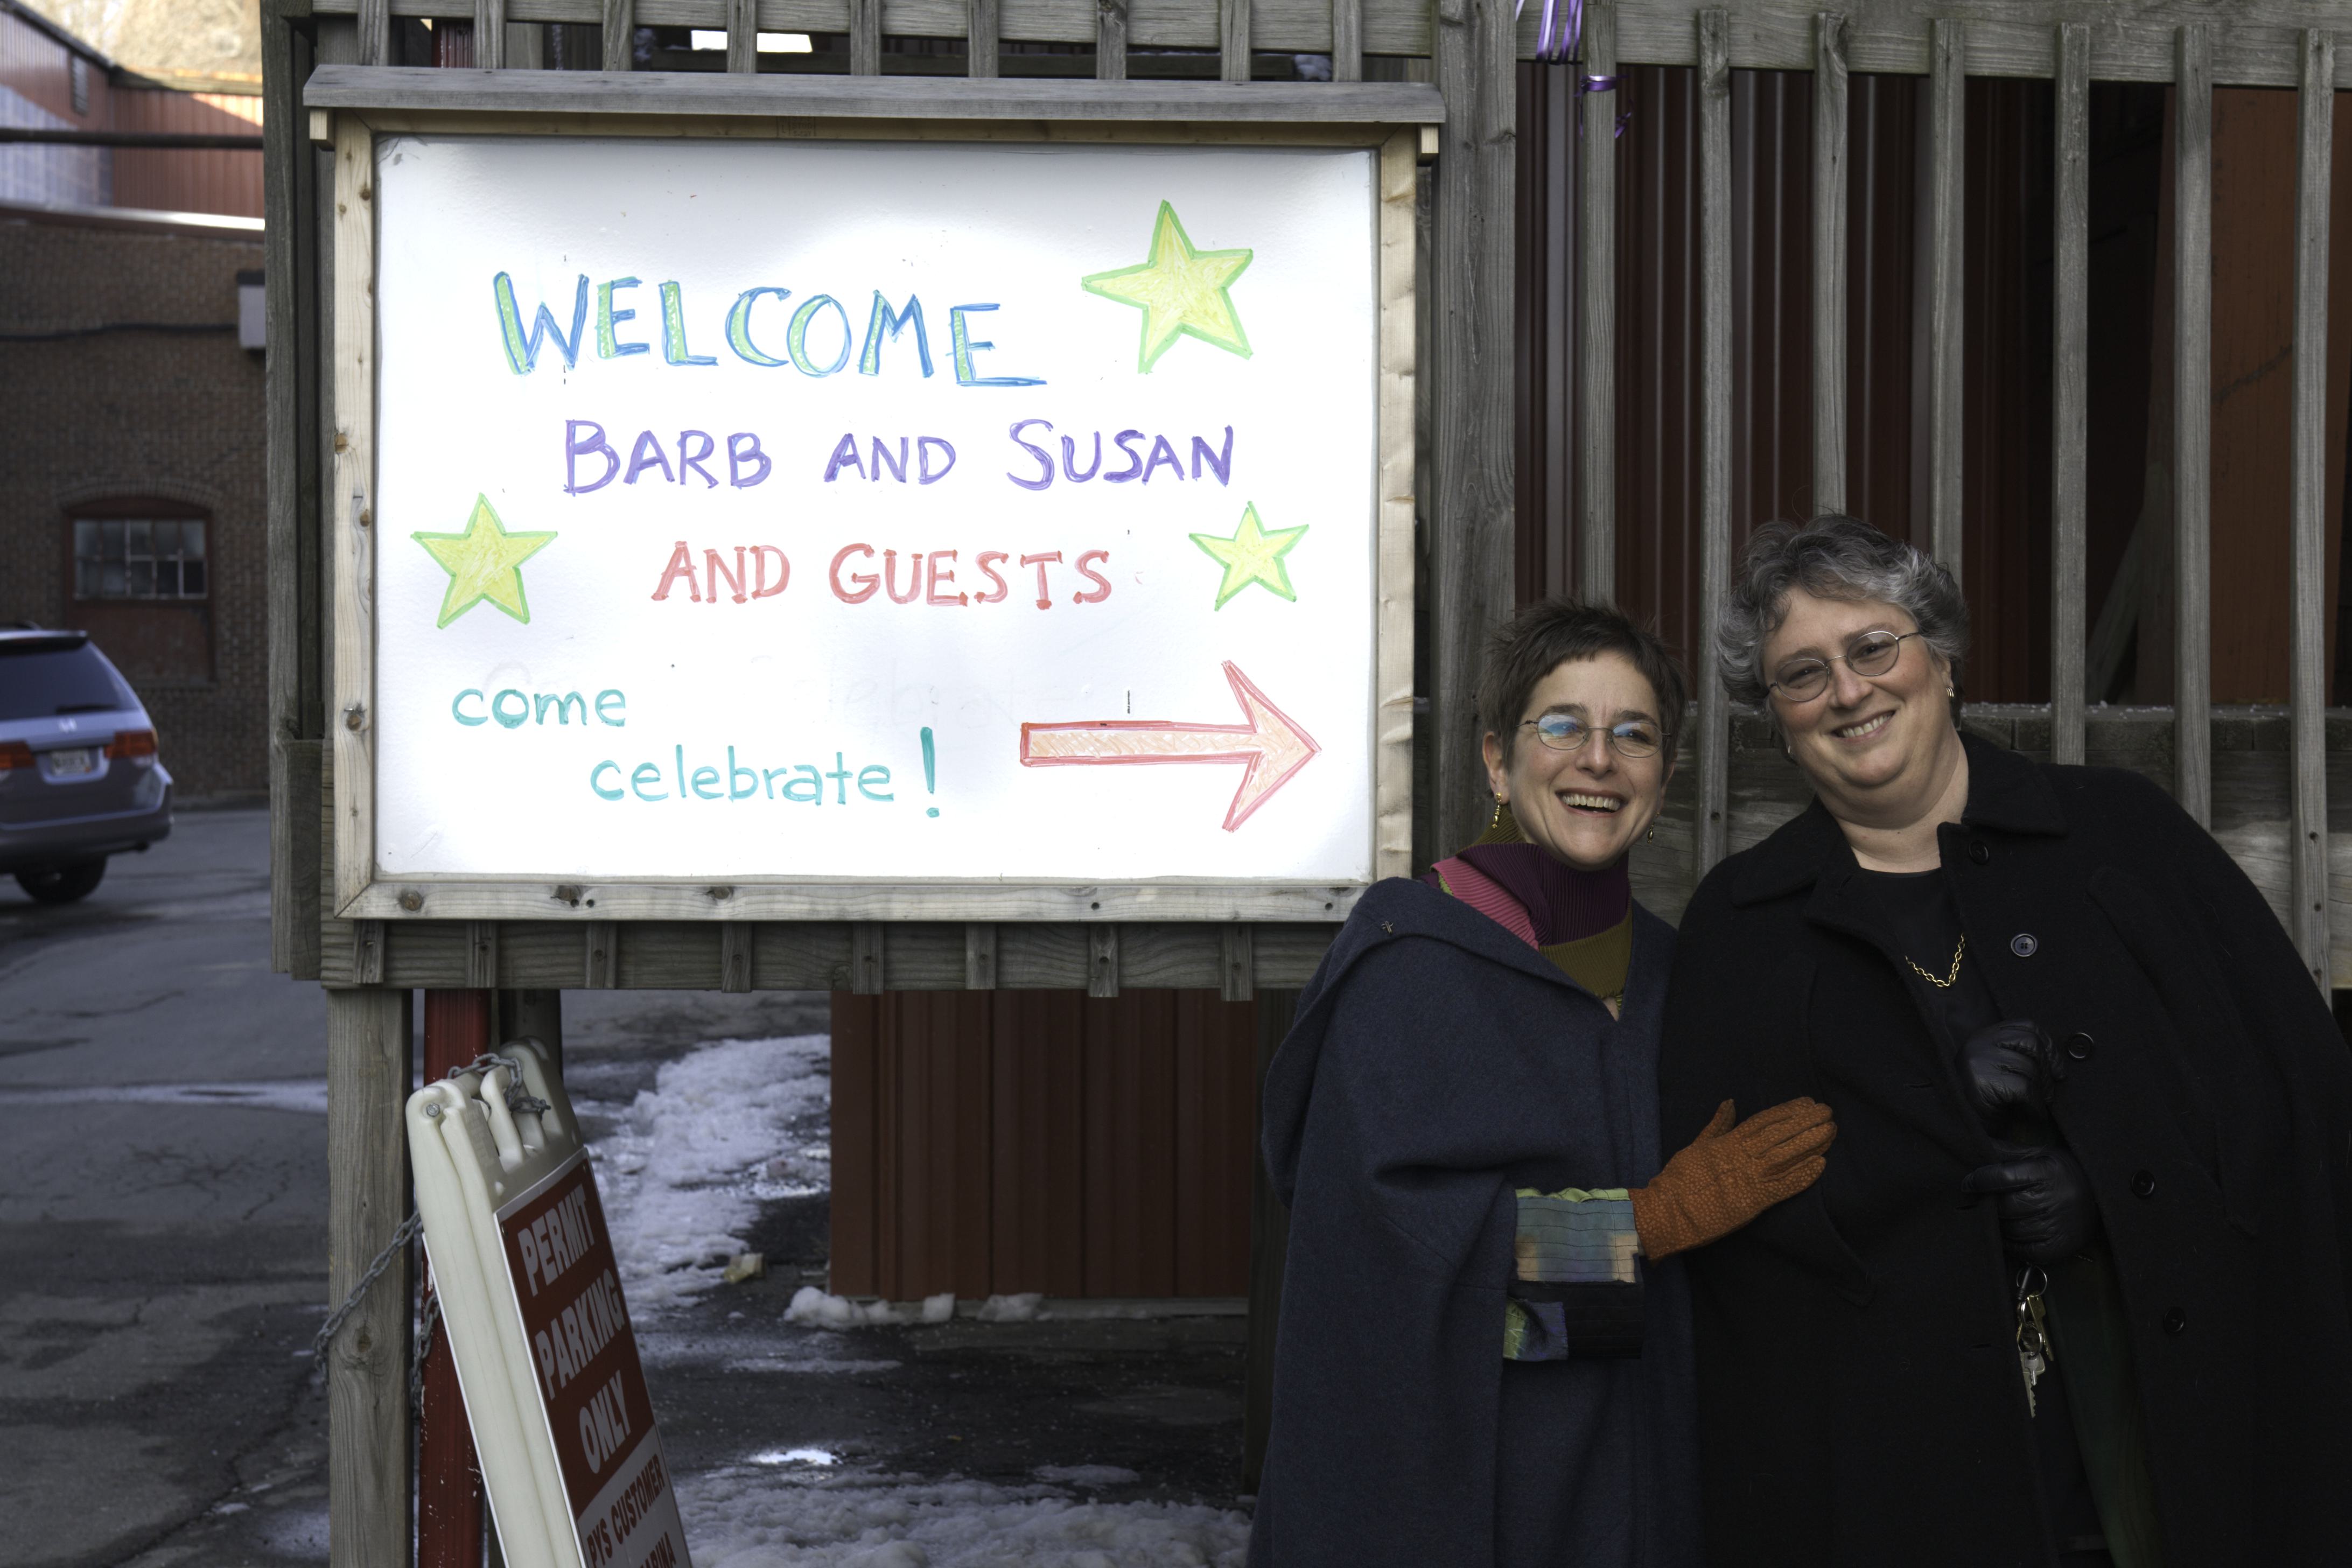 WELCOME
BARB AND SUSAN
AND GUESTS
come
celebrate!
PERMIT
PARKING
ONLY
PYS CUSTOMER